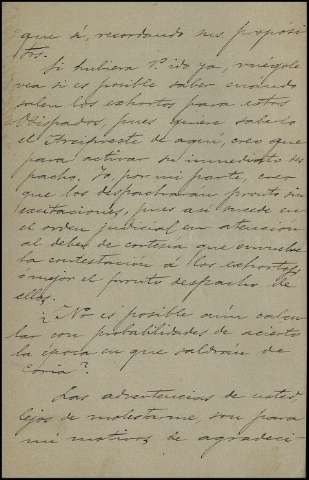 que sí, recordando sus propósi-
tos.
Si hubiera V. ido ya, ruégole
vea si es posible saber cuándo
salen los exhortos para estos
Obispados, pues quiere saberlo
el Arcipreste de aquí, creo que
para activar su inmediato des-
pacho. Yo, por mi parte, creo
que los despacharán pronto sin
excitaciones, pues así sucede en
el orden judicial en atención
al deber de cortesía que envuelve
la contestación á los exhortos,
ó mejor el pronto despacho de
ellos.
¿No es posible aún calcu-
lar con probabilidades de acierto
la época en que saldrán de
Coria?
Las advertencias de usted
lejos de molestarme, son para
mí motivos de agradeci-